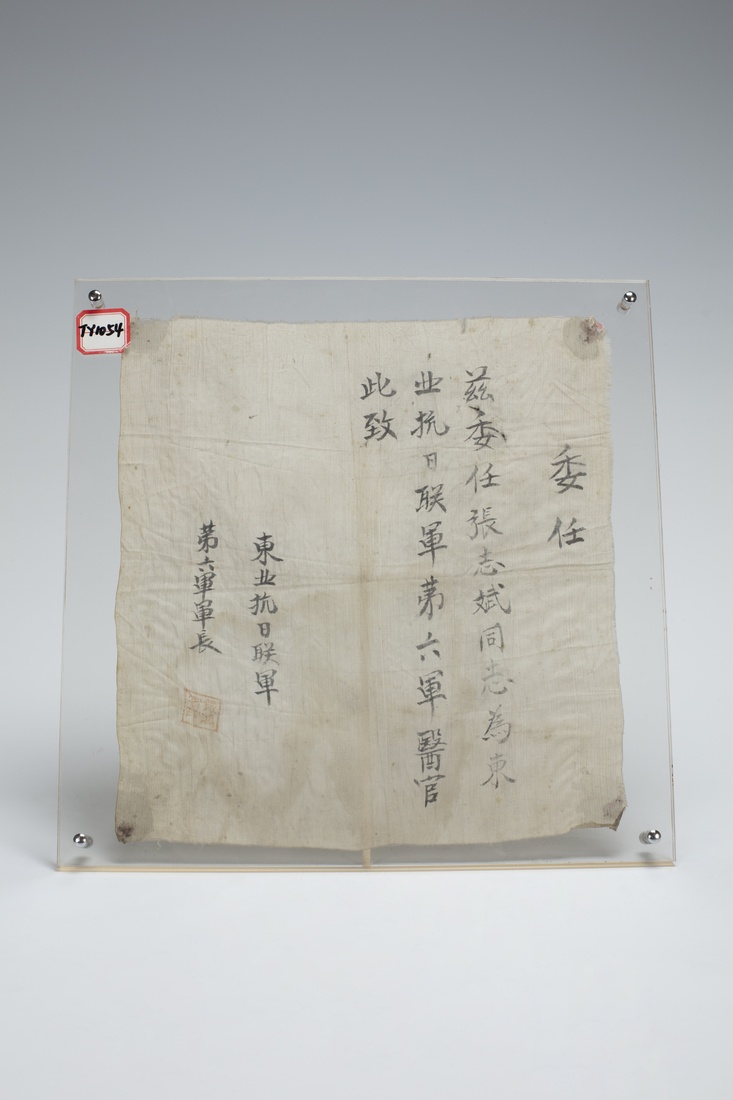 TY1054
委任
茲委任張志斌同志為東
北抗日联軍第六軍醫官
此致
東北抗日联軍
第六軍軍長